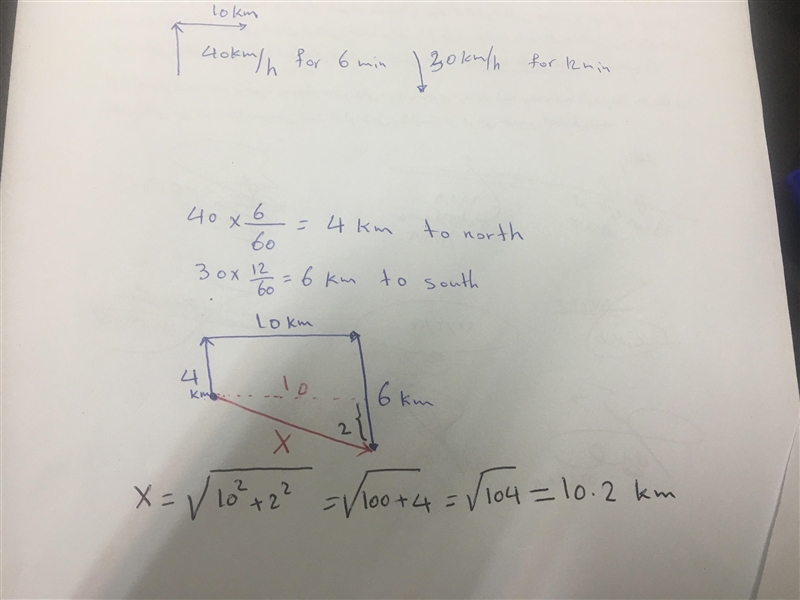 10 km
40km/h for 6 min 30km/h for 12min
40 × 6/60 = 4 km to north
30 × 12/60 = 6 km to south
10 km
4 km 10 6 km
2
X
X = √10² + 2² = √100 + 4 = √104 = 10.2 km